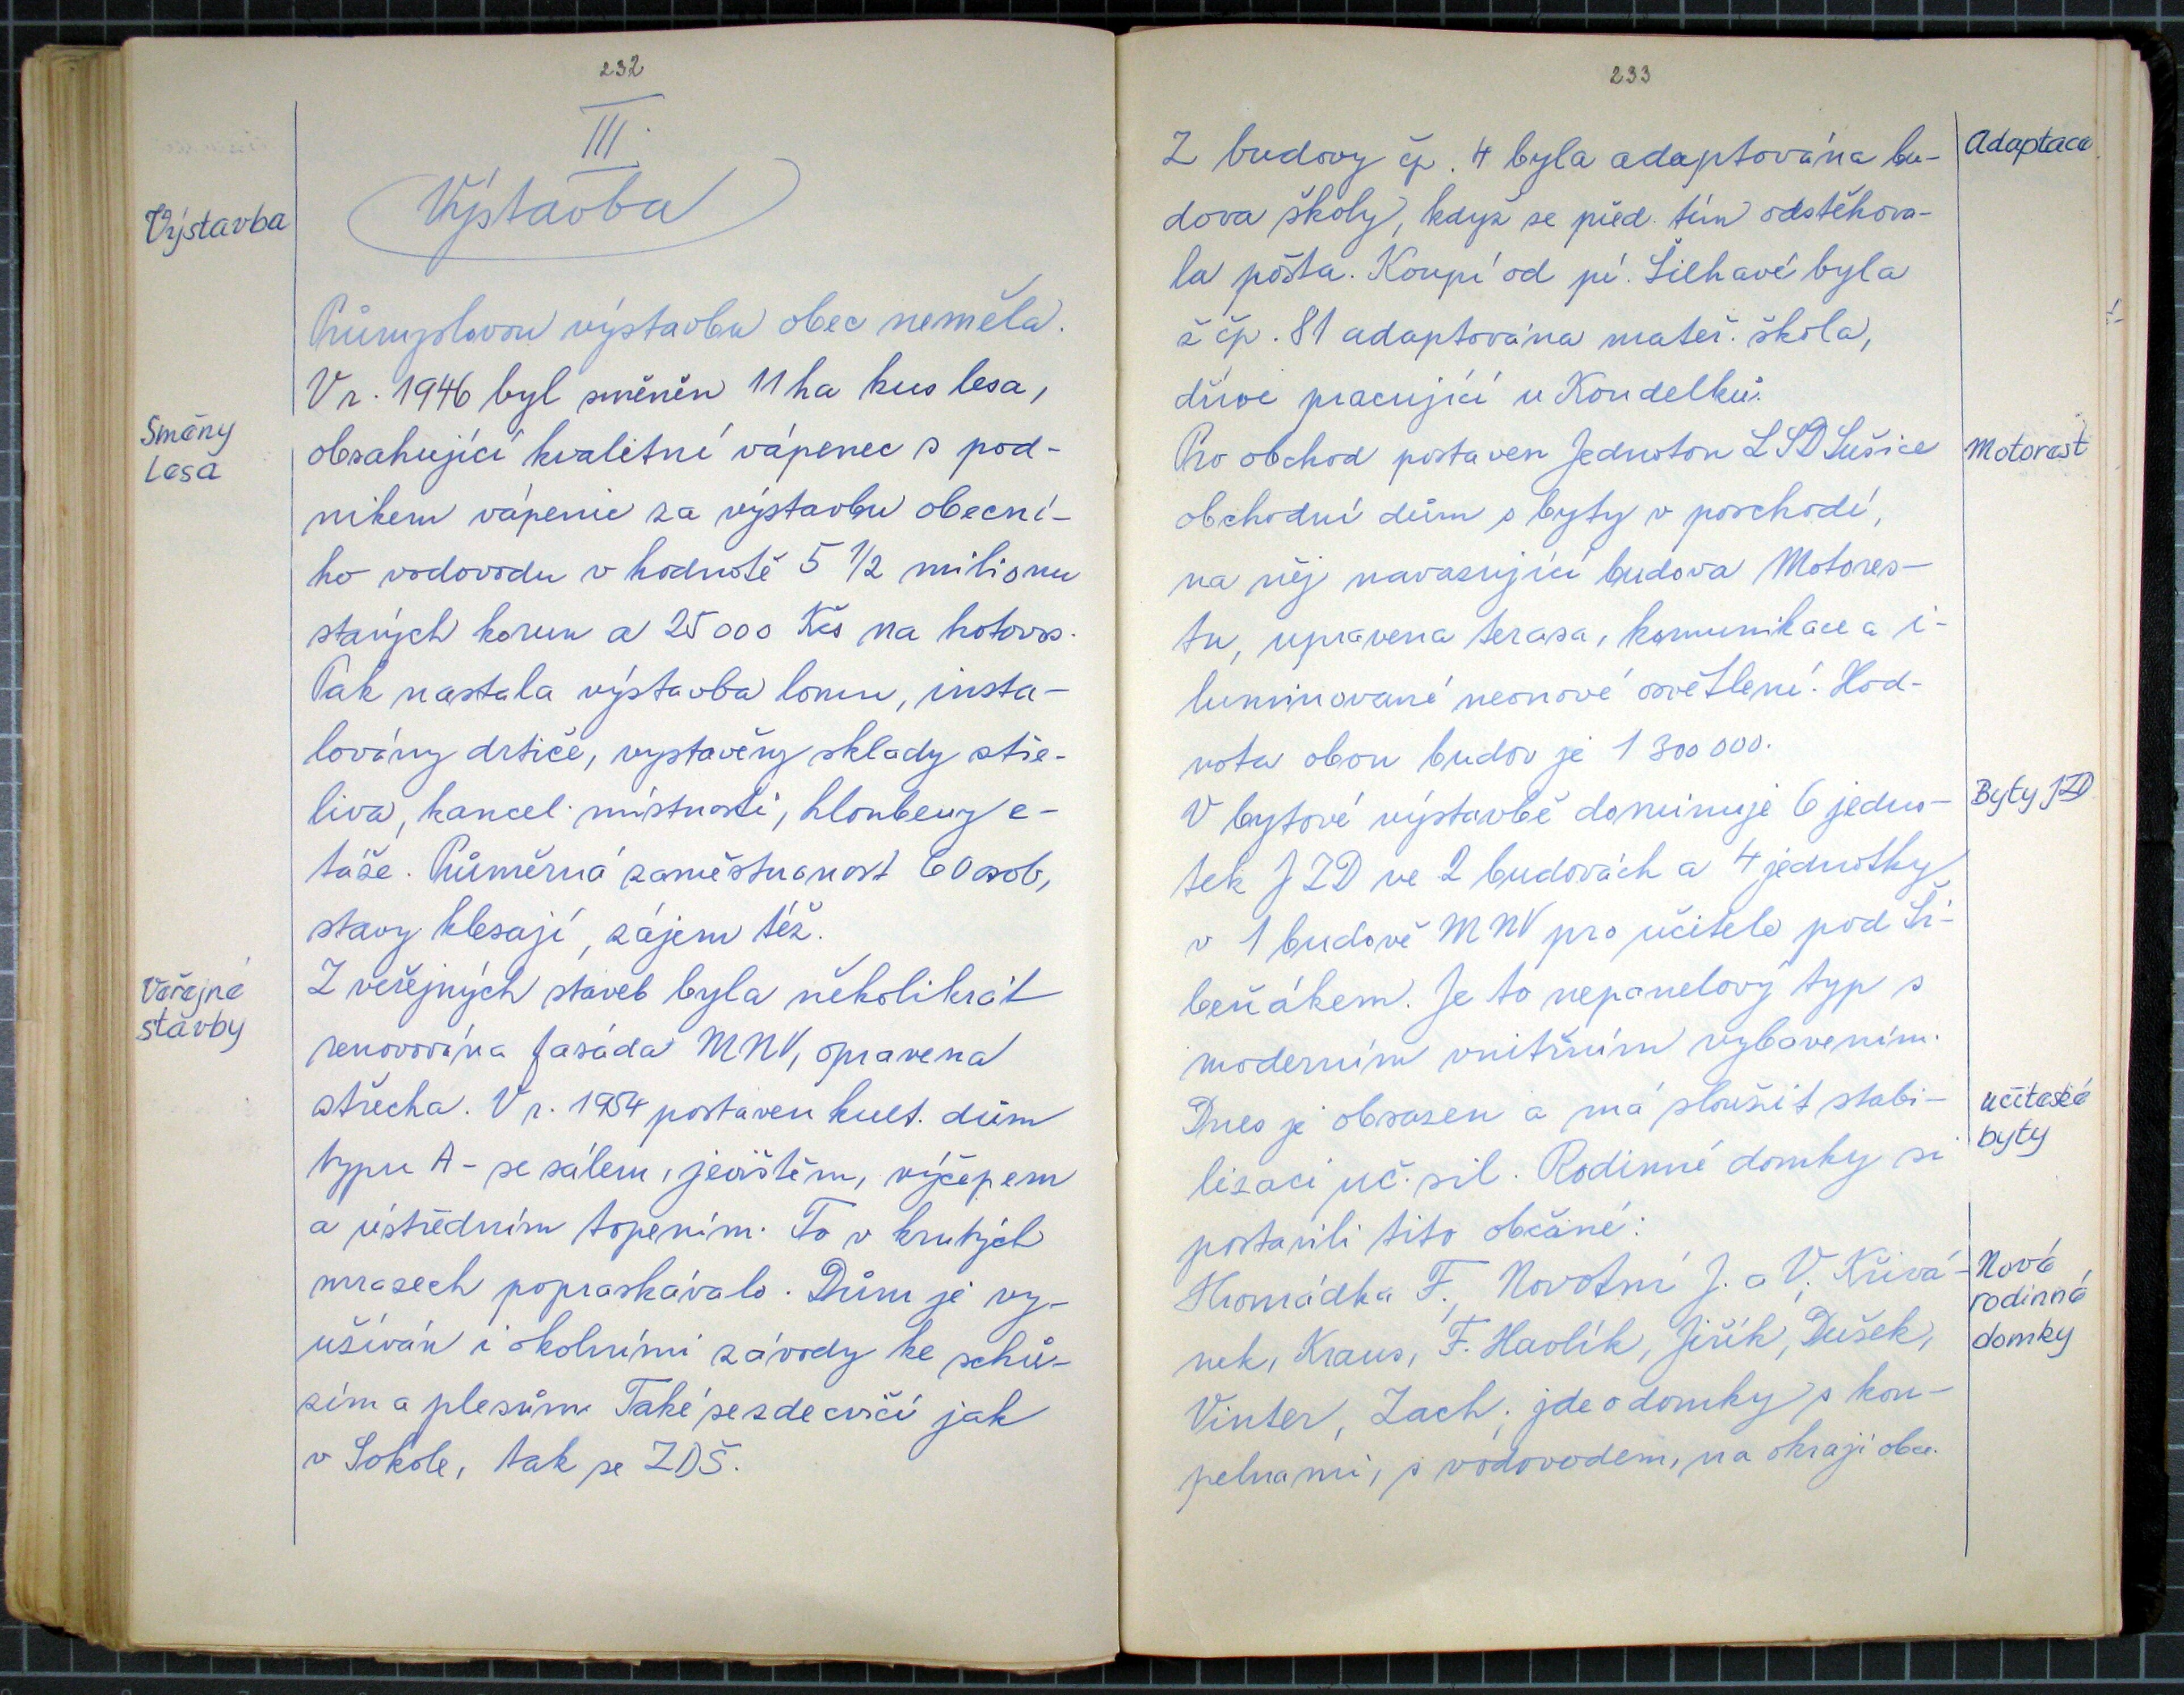 232
III.
Výstavba
Výstavba
Průmyslovou výstavbu obec neměla.
V r. 1946 byl směněn 11 ha kus lesa,
Směny
Lesa
obsahující kvalitní vápenec s pod-
nikem vápenic za výstavbu obecní-
ho vodovodu v hodnotě 5 1/2 milionu
starých korun a 25 000 Kčs na hotovos.
Pak nastala výstavba lomu, insta-
lovány drtiče, vystavěny sklady stře-
liva, kancel. místnosti, hloubeny e-
táže. Průměrná zaměstnanost 60 osob,
stavy klesají, zájem též.
Veřejné
stavby
Z veřejných staveb byla několikrát
renovována fasáda MNV, opravena
střecha. V r. 1954 postaven kult. dům
typu A - se sálem, jevištěm, výčepem
a ústředním topením. To v krutých
mrazech popraskávalo. Dům je vy-
užíván i okolními závody ke schů-
zím a plesům. Také se zde cvičí jak
v Sokole, tak se ZDŠ.
233
Z budovy čp. 4 byla adaptována bu-
Adaptace
dova školy, když se před tím odstěhova-
la pošta. Koupí od pí. Šilhavé byla
z čp. 81 adaptována mateř. škola,
dříve pracující u Koudelků.
Pro obchod postaven Jednotou LSD Sušice
Motorest
obchodní dům s byty v poschodí,
na něj navazující budova Motores-
tu, upravena terasa, komunikace a i-
luminované neonové osvětlení. Hod-
nota obou budov je 1 300 000.
V bytové výstavbě dominuje 6 jedno-
Byty JZD
tek JZD ve 2 budovách a 4 jednotky
v 1 budově MNV pro učitele pod Ši-
beňákem. Je to nepanelový typ s
moderním vnitřním vybavením.
Dnes je obsazen a má sloužit stabi-
Učitelské
byty
lizaci uč. sil. Rodinné domky si
postavili tito občané:
Hromádka F., Novotní J. a V., Křivá-
Nové
rodinné
domky
nek, Kraus, F. Havlík, Jiřík, Dušek,
Vinter, Zach; jde o domky s kou-
pelnami, s vodovodem, na okraji obce.